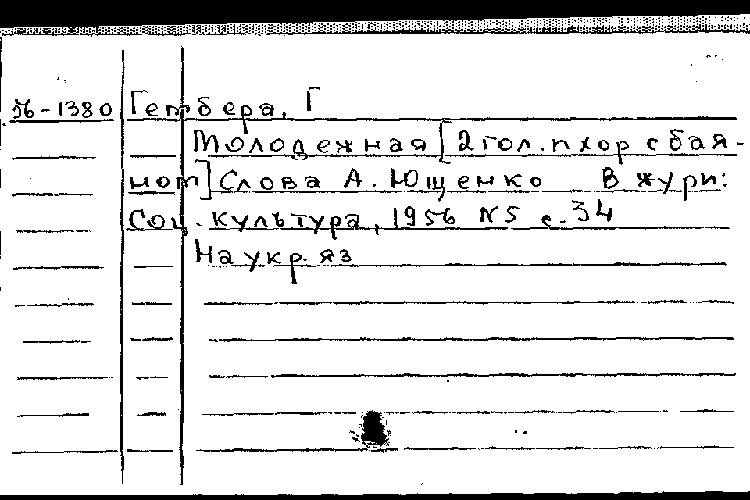 56-1380 Гембера, Г
Молодежная [2 гол. п хор с бая-
ном] Слова А. Ющенко В журн:
Соц. культура, 1956 №5 с. 34
На укр. яз